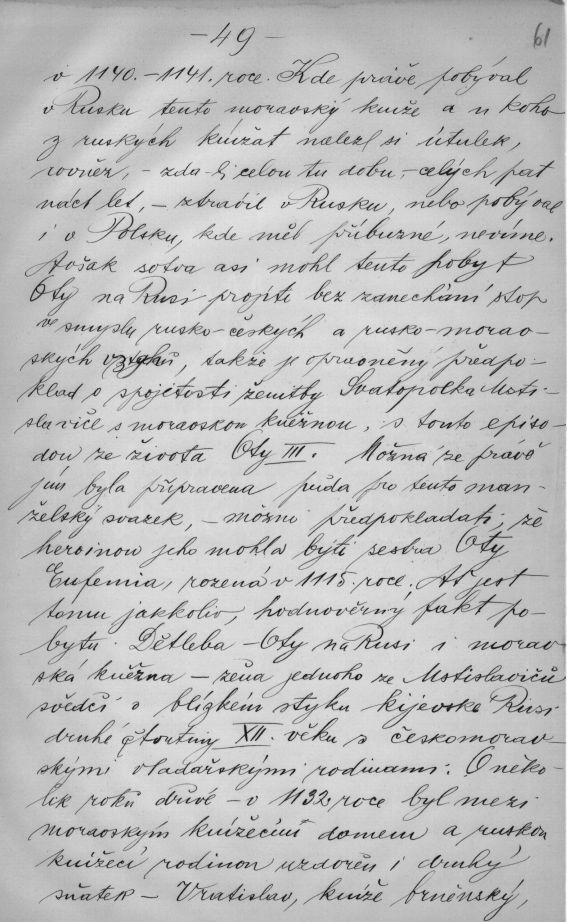 - 49 -
61
v 1140.-1141. roce. Kde právě pobýval
v Rusku tento moravský kníže a u koho
z ruských knížat nalezl si útulek,
rovněž, - zda-li celou tu dobu, - celých pat
náct let, - ztrávil v Rusku, nebo pobýval
i v Polsku, kde měl příbuzné, nevíme.
Avšak sotva asi mohl tento pobyt
Oty na Rusi projíti bez zanechání stop
ve smyslu rusko-českých a rusko-morav-
ských vztahů, takže je oprávněný předpo-
klad o spojitosti ženitby Svatopolka Msti-
slaviče s moravskou kněžnou, s touto episo-
dou ze života Oty III. Možná že právě
jím byla připravena půda pro tento man-
želský svazek, - možno předpokládati, že
heroinou jeho mohla býti sestra Oty
Eufemia, rozená v 1115. roce. Ať jest
tomu jakkoliv, hodnověrný fakt po-
bytu Dětleba - Oty na Rusi i morav
ská kněžna - žena jednoho ze Mstislavičů
svědčí o blízkém styku kijevské Rusi
druhé čtvrtiny XII. věku s českomorav
skými vladařskými rodinami. O něko-
lik roků dříve - v 1132 roce byl mezi
moravským knížecím domem a ruskou
knížecí rodinou uzavřen i druhý
sňatek - Vratislav, kníže brněnský,